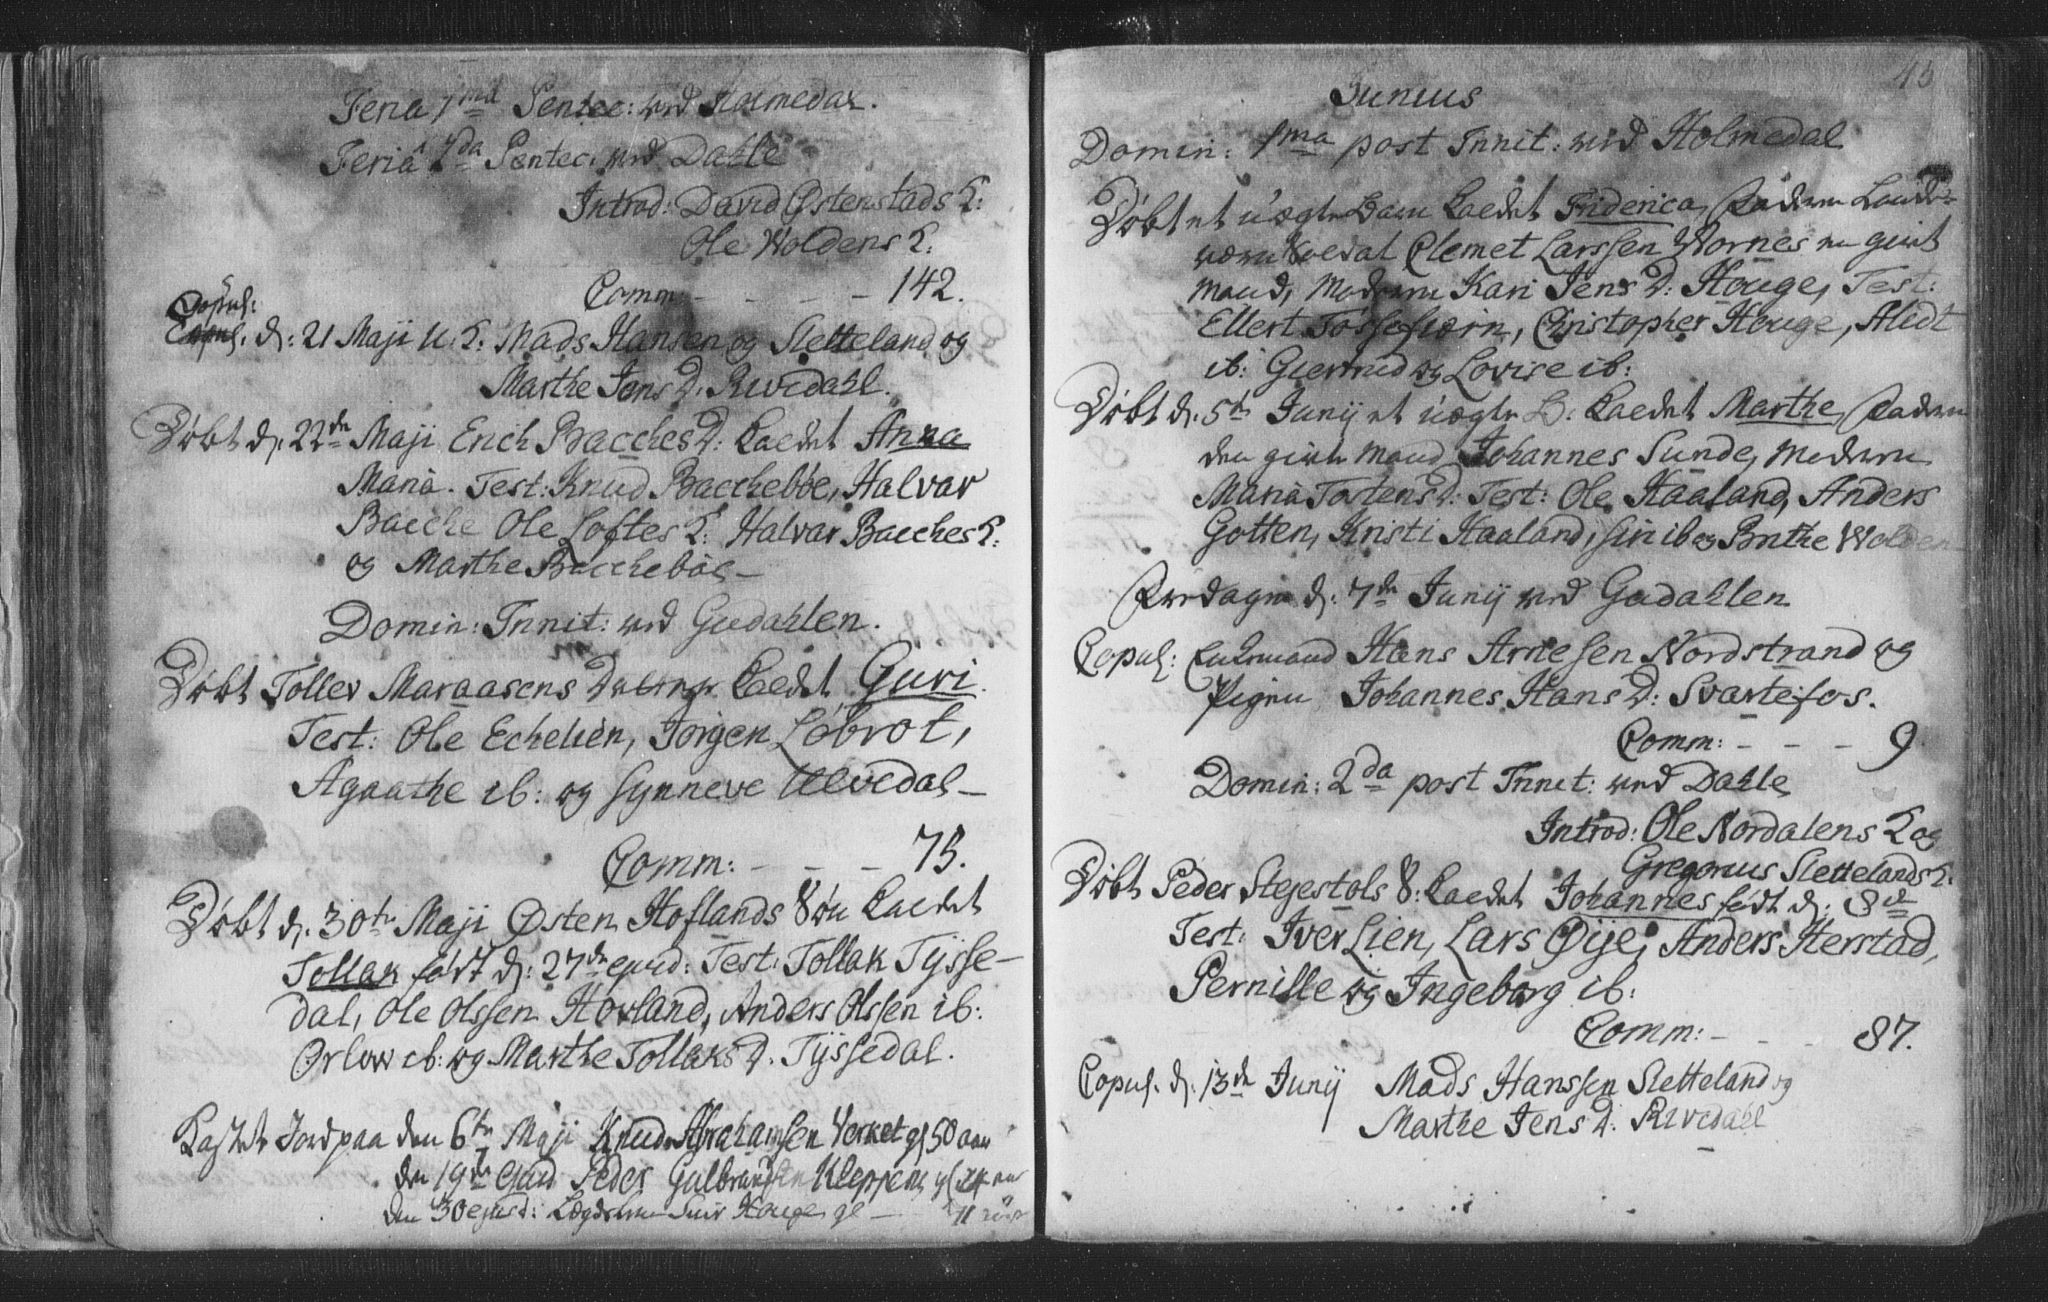 Feria 1ma Pentec: ved Holmedal.
Feria 2da Pentec: ved Dahle
Introd: David Østenstads K:
Ole Woldens K:
Comm: - - - - 142.
Copul:
d: 21 Maji U: K: Mads Hansen og Sletteland og
Marthe Jens D. Rivedahl.
Døbt d: 22de Maji Erich Bacches D: kaldet Anna
Maria. Test: Knud Bacchebøe, Halvar
Bacche Ole Loftes K: Halvar Bacches K:
og Marthe Bacchebøe -
Domin: Trinit: ved Gudahlen.
Døbt Tollev Maraasens Datter kaldet Guri.
Test: Ole Echelien, Jørgen Løbrot,
Agaathe ib: og Synneve Ulvedal -
Comm: - - - 75.
Døbt d: 30te Maji Østen Hoflands Søn kaldet
Tollak født d: 27de ejusd: Test: Tollak Tysse-
dal, Ole Olssen Hovland, Anders Olssen ib:
Orlow ib: og Marthe Tollaks D. Tyssedal.
Kastet Jord paa den 6te Maji Knud Abrahamsen Verket gl 50 aar
den 19de ejusd Peder Gulbrandsen Kleppen gl 24 aar
den 30 ejusd: Lægdslem Siri Houge gl - 71 aar
45
Junius
Domin: 1ma post Trinit: ved Holmedal
Døbt et uægte Barn kaldet Friderica, Faderen Land-
værn Soldat Clemet Larssen Wornes en givt
Mand, Moderen Kari Jens D: Houge, Test:
Ellert Fossefiærn, Christopher Houge, Alidt
ib: Giertrud og Lovise ib:
Døbt d: 5te Junij et uægte B: kaldet Marthe, Faderen
den givte Mand Johannes Sunde, Moderen
Maria Tostens D: Test: Ole Haaland, Anders
Gotten, Kristi Haaland, Siri ib og Brithe Wolden
Fredagen d: 7de Junij ved Gudahlen
Copul: Enkemand Hans Arnesen Nordstrand og
Pigen Johannes Hans D: Svartefos.
Comm: - - - 9
Domin: 2da post Trinit: ved Dahle
Introd: Ole Nordalens K og
Gregorius Slettelands K:
Døbt Peder Stejestols S: kaldet Johannes født d: 8de
Test: Iver Lien, Lars Øije, Anders Herstad,
Pernille og Ingeborg ib:
Comm: - - - 87.
Copul. d: 13de Junij Mads Hanssen Sletteland og
Marthe Jens D: Rivedahl